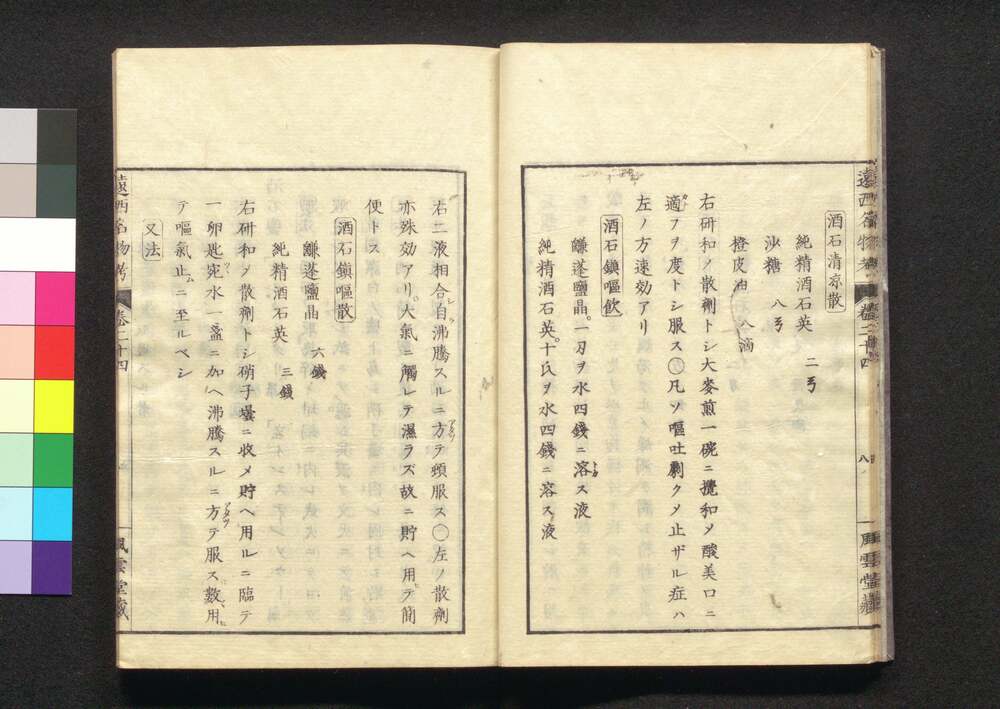 遠西名物考 卷二十四 八 風雲堂藏
酒石清涼散
純精酒石英 二弓
沙糖 八弓
橙皮油 八滴
右研和メ散劑トシ大麥煎一碗ニ攪和メ酸美口ニ
適フヲ度トシ服ス〇凡ソ嘔吐劇クメ止ザル症ハ
左ノ方速効アリ
酒石鎭嘔飲
鎌蓬鹽晶。一刃ヲ水四錢ニ溶ス液
純精酒石英。十氏ヲ水四錢ニ溶ス液
右二液相合シ自ラ沸騰スルニ方テ頓服ス〇左ノ散劑
亦殊効アリ大氣ニ觸レテ濕ラズ故ニ貯ヘ用ヒテ簡
便トス
酒石鎭嘔散
鎌蓬鹽晶 六錢
純精酒石英 三錢
右研和メ散劑トシ硝子壜ニ收メ貯ヘ用ルニ臨テ
一卵匙宛水一盞ニ加ヘ沸騰スルニ方テ服ス數用
テ嘔氣止ムニ至ルベシ
又法
遠西名物考 卷二十四 風雲堂藏